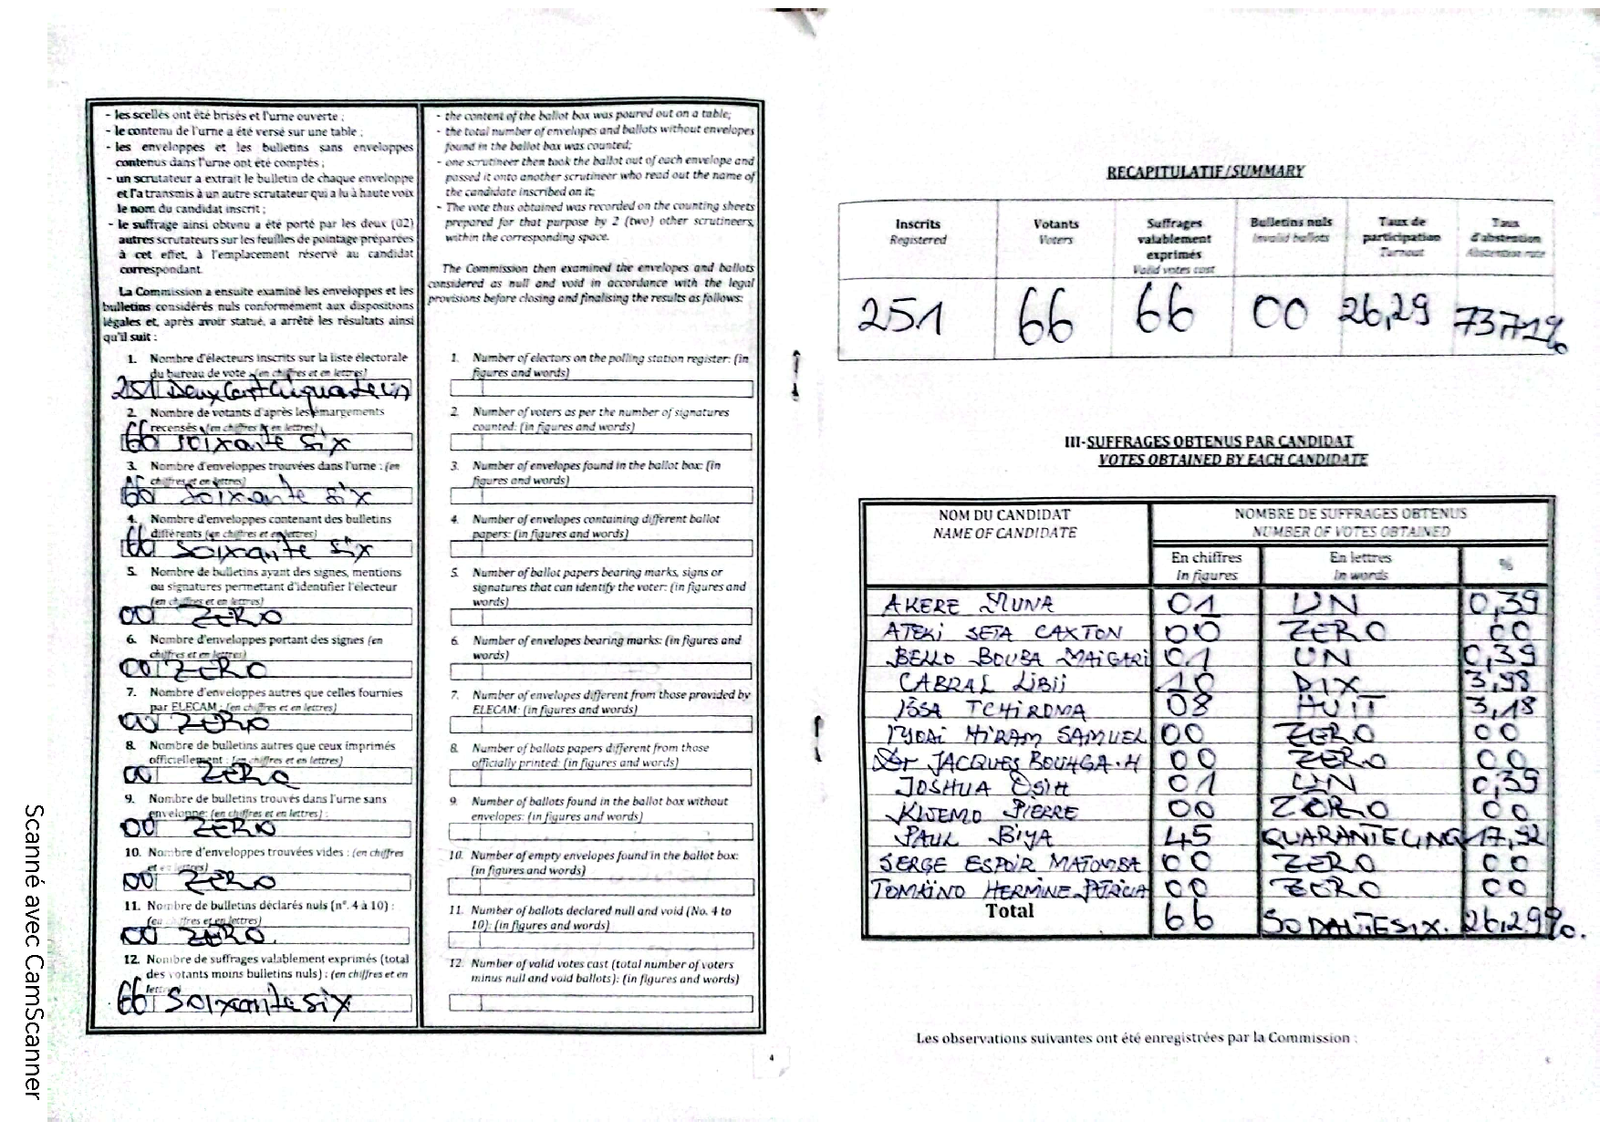 - les scellés ont été brisés et l'urne ouverte ;
- le contenu de l'urne a été versé sur une table ;
- les enveloppes et les bulletins sans enveloppes
contenus dans l'urne ont été comptés ;
- un scrutateur a extrait le bulletin de chaque enveloppe
et l'a transmis à un autre scrutateur qui a lu à haute voix
le nom du candidat inscrit ;
- le suffrage ainsi obtenu a été porté par les deux (02)
autres scrutateurs sur les feuilles de pointage préparées
à cet effet, à l'emplacement réservé au candidat
correspondant.
La Commission a ensuite examiné les enveloppes et les
bulletins considérés nuls conformément aux dispositions
légales et, après avoir statué, a arrêté les résultats ainsi
qu'il suit :
1. Nombre d'électeurs inscrits sur la liste électorale
du bureau de vote : (en chiffres et en lettres)
251 Deux Cent Cinquante un
2. Nombre de votants d'après les émargements
recensés : (en chiffres et en lettres)
66 soixante six
3. Nombre d'enveloppes trouvées dans l'urne : (en
chiffres et en lettres)
66 soixante six
4. Nombre d'enveloppes contenant des bulletins
différents (en chiffres et en lettres)
66 soixante six
5. Nombre de bulletins ayant des signes, mentions
ou signatures permettant d'identifier l'électeur
(en chiffres et en lettres)
00 ZERO
6. Nombre d'enveloppes portant des signes (en
chiffres et en lettres)
00 ZERO
7. Nombre d'enveloppes autres que celles fournies
par ELECAM : (en chiffres et en lettres)
00 ZERO
8. Nombre de bulletins autres que ceux imprimés
officiellement : (en chiffres et en lettres)
00 ZERO
9. Nombre de bulletins trouvés dans l'urne sans
enveloppe: (en chiffres et en lettres) :
00 ZERO
10. Nombre d'enveloppes trouvées vides : (en chiffres
et en lettres)
00 ZERO
11. Nombre de bulletins déclarés nuls (n°. 4 à 10) :
(en chiffres et en lettres)
00 ZERO.
12. Nombre de suffrages valablement exprimés (total
des votants moins bulletins nuls) : (en chiffres et en
lettres)
66 Soixante six
- the content of the ballot box was poured out on a table;
- the total number of envelopes and ballots without envelopes
found in the ballot box was counted;
- one scrutineer then took the ballot out of each envelope and
passed it onto another scrutineer who read out the name of
the candidate inscribed on it;
- The vote thus obtained was recorded on the counting sheets
prepared for that purpose by 2 (two) other scrutineers,
within the corresponding space.
The Commission then examined the envelopes and ballots
considered as null and void in accordance with the legal
provisions before closing and finalising the results as follows:
1. Number of electors on the polling station register: (in
figures and words)
2. Number of voters as per the number of signatures
counted: (in figures and words)
3. Number of envelopes found in the ballot box: (in
figures and words)
4. Number of envelopes containing different ballot
papers: (in figures and words)
5. Number of ballot papers bearing marks, signs or
signatures that can identify the voter: (in figures and
words)
6. Number of envelopes bearing marks: (in figures and
words)
7. Number of envelopes different from those provided by
ELECAM: (in figures and words)
8. Number of ballots papers different from those
officially printed: (in figures and words)
9. Number of ballots found in the ballot box without
envelopes: (in figures and words)
10. Number of empty envelopes found in the ballot box:
(in figures and words)
11. Number of ballots declared null and void (No. 4 to
10): (in figures and words)
12. Number of valid votes cast (total number of voters
minus null and void ballots): (in figures and words)
4
RECAPITULATIF/SUMMARY
Inscrits Registered | Votants Voters | Suffrages valablement exprimés Valid votes cast | Bulletins nuls Invalid ballots | Taux de participation Turnout | Taux d'abstention Abstention rate
251 66 66 00 26,29 73,71%
III-SUFFRAGES OBTENUS PAR CANDIDAT
VOTES OBTAINED BY EACH CANDIDATE
NOM DU CANDIDAT NOMBRE DE SUFFRAGES OBTENUS
NAME OF CANDIDATE NUMBER OF VOTES OBTAINED
En chiffres En lettres %
In figures In words
AKERE MUNA 01 UN 0,39
ATEKI SETA CAXTON 00 ZERO 00
BELLO BOUBA MAIGARI 01 UN 0,39
CABRAL LIBII 10 DIX 3,98
ISSA TCHIROMA 08 HUIT 3,18
IYODI HIRAM SAMUEL 00 ZERO 00
JACQUES BOUHGA.H 00 ZERO 00
JOSHUA OSIH 01 UN 0,39
KWEMO PIERRE 00 ZERO 00
PAUL BIYA 45 QUARANTECINQ 17,92
SERGE ESPOIR MATOMBA 00 ZERO 00
TOMAÏNO HERMINE PATRICIA 00 ZERO 00
Total 66 SOIXANTESIX. 26,29%.
Les observations suivantes ont été enregistrées par la Commission :
Scanné avec CamScanner